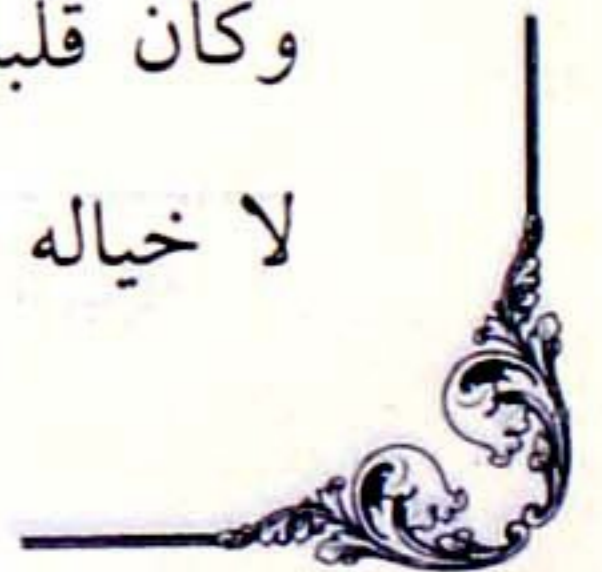 وكان قلبـ
لا خياله